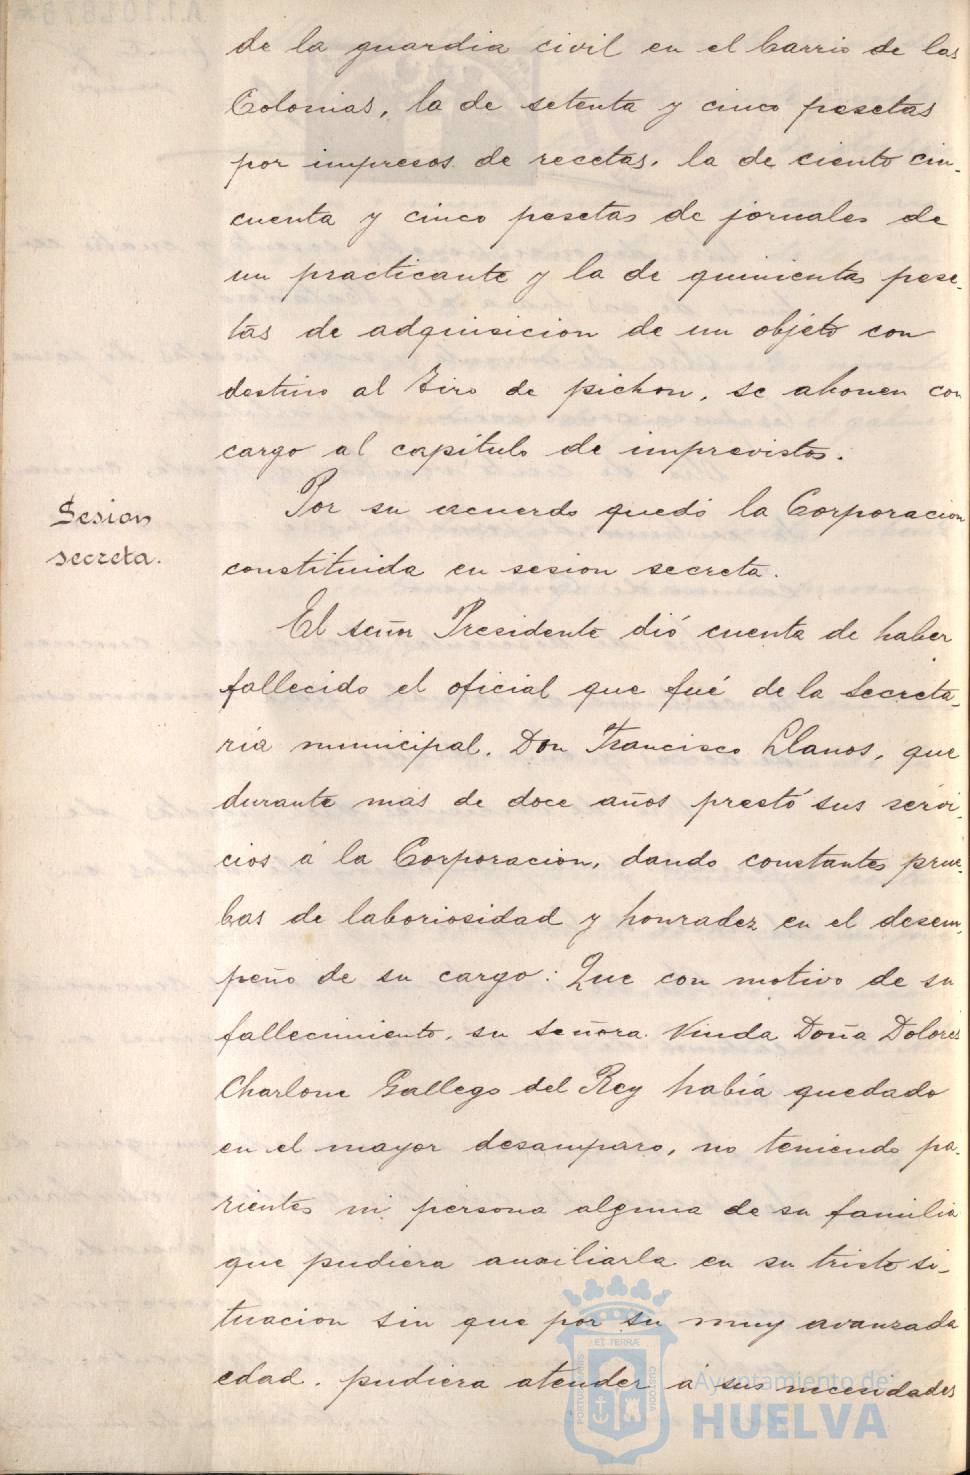 de la guardia civil en el barrio de las
Colonias, la de setenta y cinco pesetas
por impresos de recetas, la de ciento cin-
cuenta y cinco pesetas de jornales de
un practicante y la de quinientas pese-
tas de adquisicion de un objeto con
destino al Tiro de pichon, se abonen con
cargo al capítulo de imprevistos.
Sesion
secreta.
Por su acuerdo quedó la Corporacion
constituida en sesion secreta.
El señor Presidente dió cuenta de haber
fallecido el oficial que fué de la Secreta-
ria municipal, Don Francisco Llanos, que
durante mas de doce años prestó sus servi-
cios á la Corporacion, dando constantes prue-
bas de laboriosidad y honradez en el desem-
peño de su cargo: Que con motivo de su
fallecimiento, su señora Viuda Doña Dolores
Charlone Gallego del Rey había quedado
en el mayor desamparo, no teniendo pa-
rientes ni persona alguna de su familia
que pudiera auxiliarla en su triste si-
tuacion sin que por su muy avanzada
edad, pudiera atender á sus necesidades
ET TERRAE
PORTUS MARIS
CUSTODIA
Ayuntamiento de
HUELVA